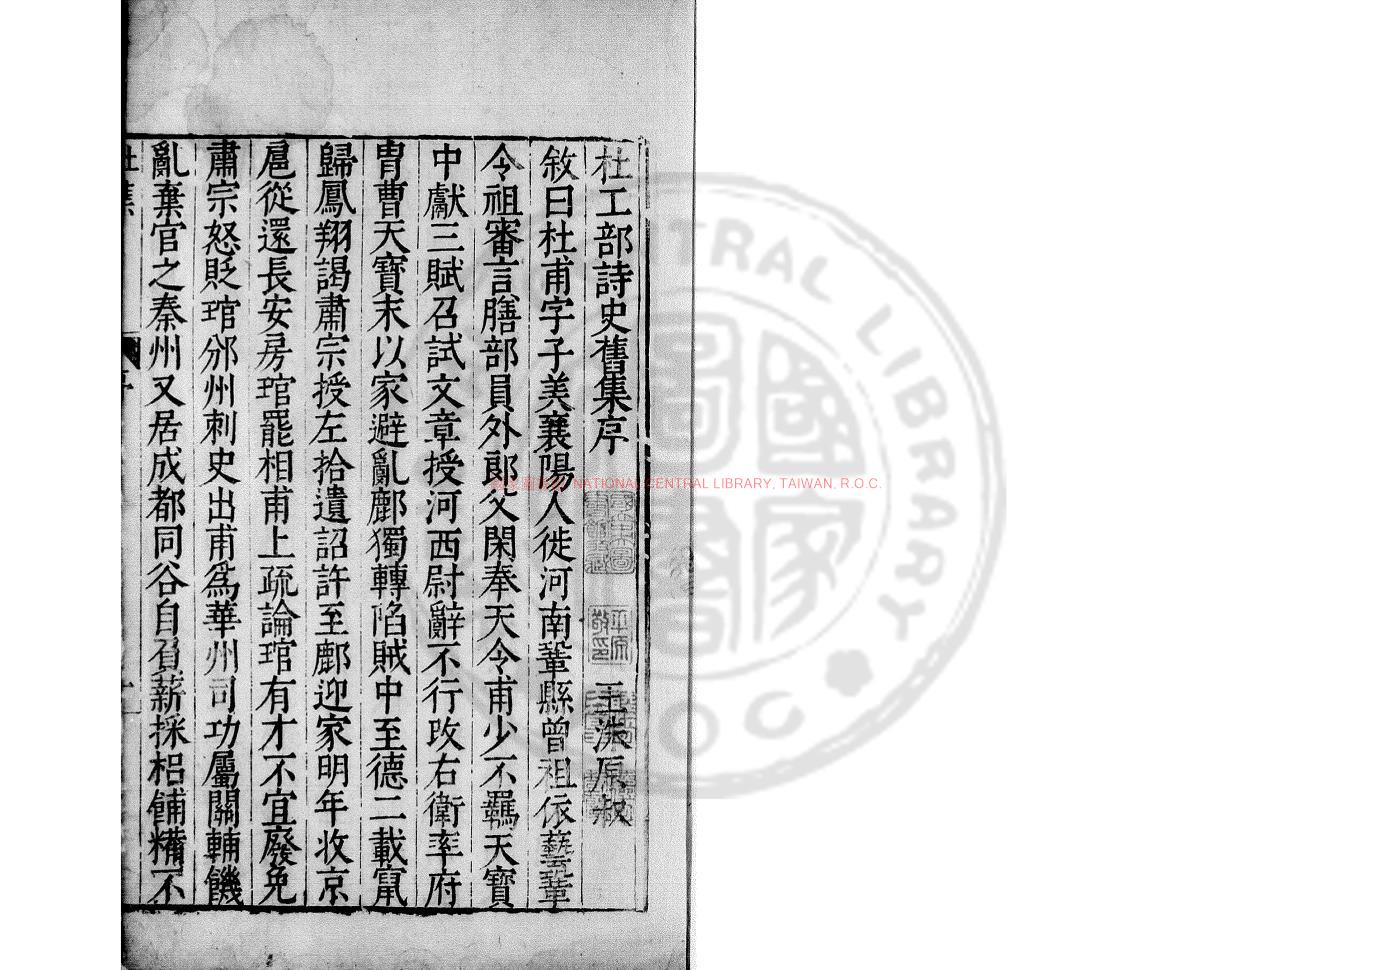 杜工部詩史舊集序
王洙原叔
敘曰杜甫字子美襄陽人徙河南鞏縣曾祖依藝鞏
令祖審言膳部員外郎父閑奉天令甫少不羈天寶
中獻三賦召試文章授河西尉辭不行改右衛率府
胄曹天寶末以家避亂鄜獨轉陷賊中至德二載竄
歸鳳翔謁肅宗授左拾遺詔許至鄜迎家明年收京
扈從還長安房琯罷相甫上疏論琯有才不宜廢免
肅宗怒貶琯邠州刺史出甫爲華州司功屬關輔饑
亂棄官之秦州又居成都同谷自負薪採梠餔糒不
NATIONAL CENTRAL LIBRARY, TAIWAN, R.O.C.
CENTRAL LIBRARY